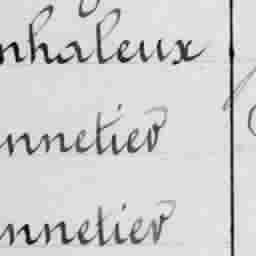 nhaleux
nnetier
nnetier